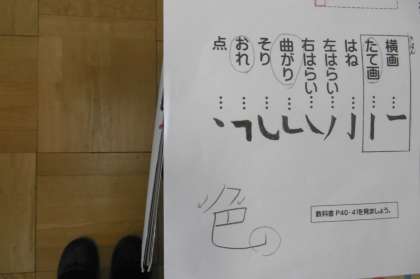 横画…
たて画…
はね…
左はらい…
右はらい…
曲がり…
そり…
おれ…
点…
色
教科書 P40-41を見ましょう。